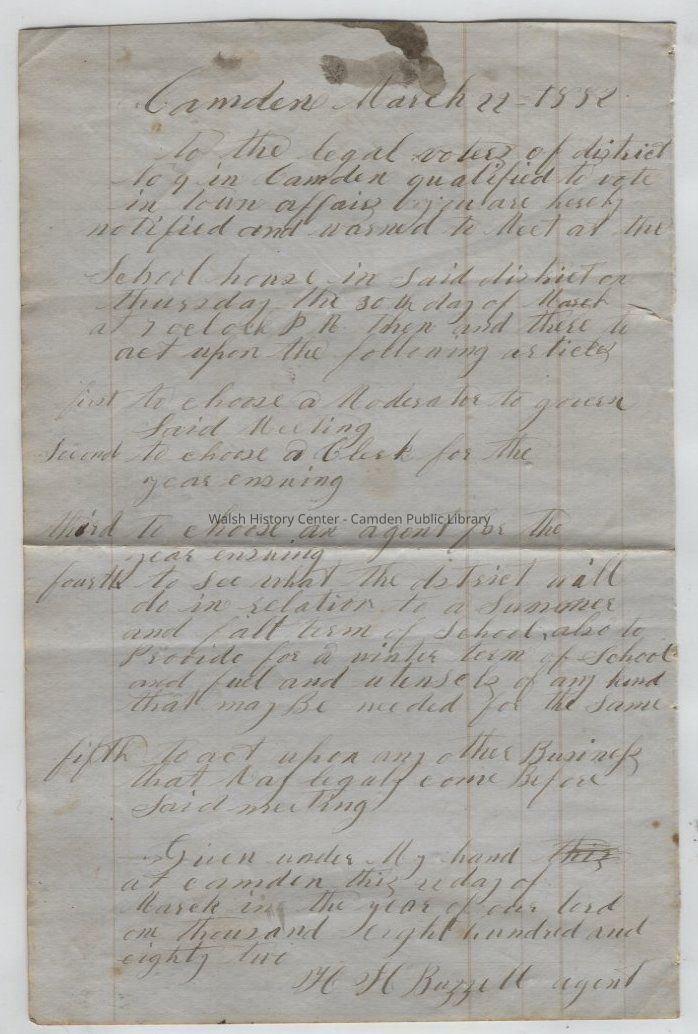 Camden March 22 - 1882
to the legal voters of district
No 9 in Camden qualified to vote
in town affairs you are hereby
notified and warned to Meet at the
School house in said district on
thursday the 30th day of March
at 7 oclock P M then and there to
act upon the following articles
first to choose a Moderator to govern
Said Meeting
Second to choose a Clerk for the
year ensuing
Walsh History Center - Camden Public Library
third to choose an agent for the
year ensuing
fourth to see what the district will
do in relation to a Summer
and fall term of School, also to
Provide for a winter term of School
and fuel and utensels of any kind
that may Be needed for the same
fifth to act upon any other Business
that May legaly come Before
Said meeting
Given under My hand this
at camden this day of
March in the year of our lord
one thousand eight hundred and
eighty two
H H Buzzell agent